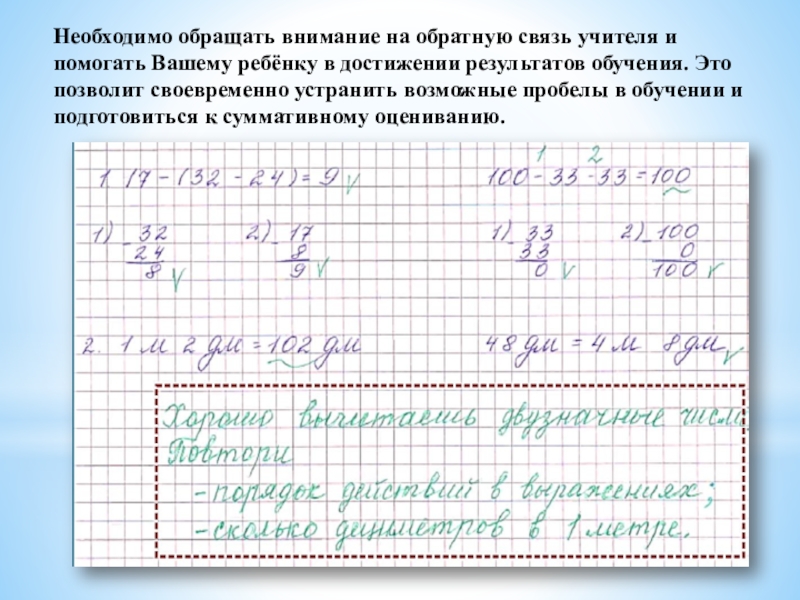 Необходимо обращать внимание на обратную связь учителя и
помогать Вашему ребёнку в достижении результатов обучения. Это
позволит своевременно устранить возможные пробелы в обучении и
подготовиться к суммативному оцениванию.
1 2
1 17 - (32 - 24) = 9 √ 100 - 33 - 33 = 100
1) - 32 2) - 17 1) - 33 2) - 100
24 8 33 0
8 √ 9 √ 0 √ 100 √
2. 1 м 2 дм = 102 дм 48 дм = 4 м 8 дм √
Хорошо вычетаешь двузначные числа
Повтори
- порядок действий в выражениях;
- сколько дециметров в 1 метре.